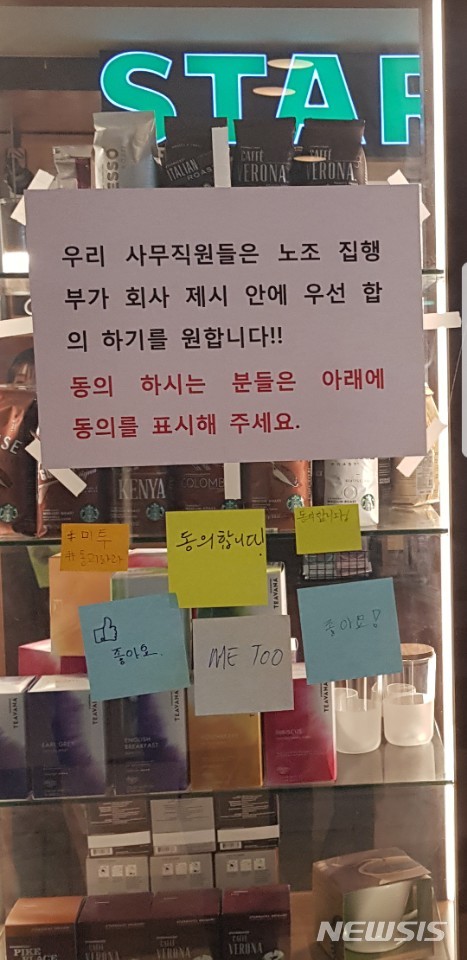 STAR
ITALIAN
ROAST
CAFFÈ
VERONA
CAFFÈ
VERONA
우리 사무직원들은 노조 집행
부가 회사 제시 안에 우선 합
의 하기를 원합니다!!
동의 하시는 분들은 아래에
동의를 표시해 주세요.
KENYA
COLOMBIA
#미투
동의합니다!
동의합니다!
좋아요.
ME TOO
좋아요!
TEAVANA
EARL GREY
TEAVANA
ENGLISH
BREAKFAST
TEAVANA
HIBISCUS
PIKE
PLACE
CAFFÈ
VERONA
VERONA
NEWSIS